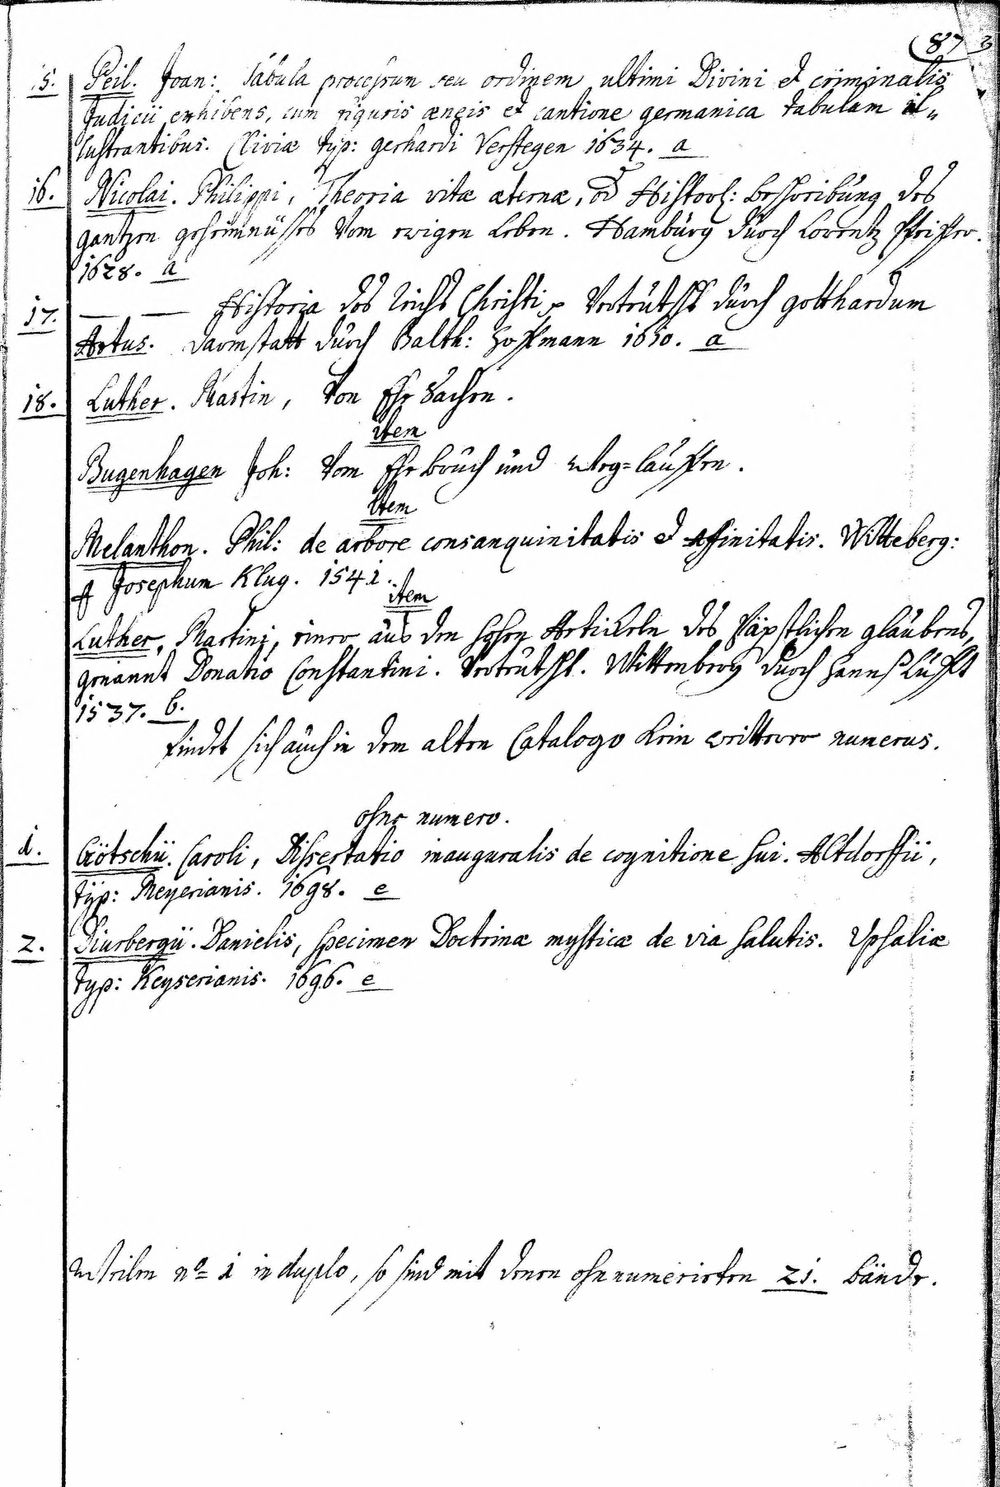 87 3
15. Peil. Joan: Tabula processum seu ordinem ultimi Divini et criminalis
Judicii exhibens, cum figuris æneis et cantione germanica tabulam il„
lustrantibus. Cliviæ typ: gerhardi Verstegen 1634. a
16. Nicolai. Philippi, Theoria vitæ æternæ, od Histor: beschreibung des
gantzen geheimnüsses vom ewigen Leben. Hamburg durch Lorentz Pfeiffer.
1628. a
17. — — Historia des Reichs Christi verteutscht durch gotthardum
Artus. Darmstatt durch Balth: Hoffmann 1610. a
18. Luther. Martin, Von Ehe Sachen.
item
Bugenhagen Joh: Vom Ehebruch und weg=lauffen.
Item
Melanthon. Phil: de arbore consanquinitatis et Affinitatis. Witteberg:
Josephum Klug. 1541.
item
Luther, Martini, einer aus den hohen Artickeln des Päpstlichen glaubens,
genannt Donatio Constantini. Verteutscht. Wittenberg durch Hanns Lufft
1537. b.
findet sich auch in dem alten Catalogo kein weiterer numerus.
ohne numero.
1. Götschii. Caroli, Dissertatio inauguralis de cognitione sui. Altdorffii,
typ: Meyerianis. 1698. e
2. Diurbergii. Danielis, specimen Doctrinæ mysticæ de via salutis. Upsaliæ
typ: Keyserianis. 1696. e
Weilen nº 1 in duplo, so sind mit denen ohnnumerirten 21. bände.